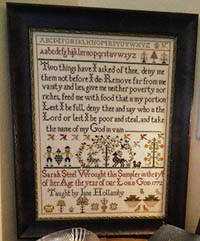 ABCDEFGHIKLMNOPRSTUVWXYZ
aabcdefghijklmnopqrstuvwxyz
Two things have I asked of thee, deny me
them not before I de: Remove far from me
vanity and lies, give me neither poverty nor
riches, feed me with food that is my portion
Lest I be full, deny thee and say who is the
Lord or lest I be poor and steal, and take
the name of my God in vain
Sarah Steel Wrought this Sampler in the
of her Age the year of our Lord God 1772
Taught by Jane Hollansby